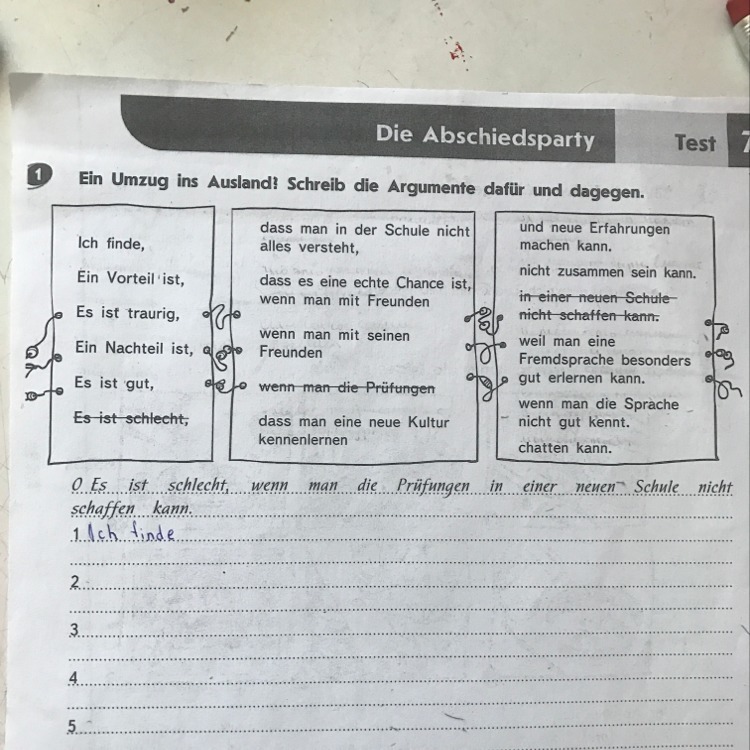 Die Abschiedsparty
Test 7
1 Ein Umzug ins Ausland? Schreib die Argumente dafür und dagegen.
Ich finde,
Ein Vorteil ist,
Es ist traurig,
Ein Nachteil ist,
Es ist gut,
Es ist schlecht,
dass man in der Schule nicht
alles versteht,
dass es eine echte Chance ist,
wenn man mit Freunden
wenn man mit seinen
Freunden
wenn man die Prüfungen
dass man eine neue Kultur
kennenlernen
und neue Erfahrungen
machen kann.
nicht zusammen sein kann.
in einer neuen Schule
nicht schaffen kann.
weil man eine
Fremdsprache besonders
gut erlernen kann.
wenn man die Sprache
nicht gut kennt.
chatten kann.
0 Es ist schlecht, wenn man die Prüfungen in einer neuen Schule nicht
schaffen kann.
1 Ich finde
2
3
4
5